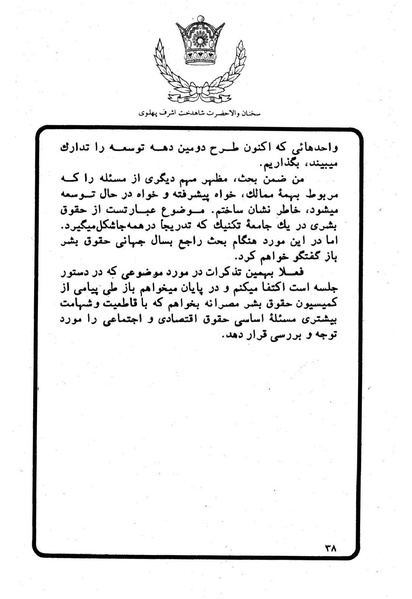 سخنان والاحضرت شاهدخت اشرف پهلوی
واحدهائی که اکنون طرح دومین دهه توسعه را تدارك
میبینند، بگذاریم.
من ضمن بحث، مظهر مهم دیگری از مسئله را که
مربوط بهمهٔ ممالك، خواه پیشرفته و خواه در حال توسعه
میشود، خاطر نشان ساختم. موضوع عبارتست از حقوق
بشری در یك جامعهٔ تکنیك که تدریجاً درهمه‌جاشکل‌میگیرد.
اما در این مورد هنگام بحث راجع بسال جهانی حقوق بشر
باز گفتگو خواهم کرد.
فعلا بهمین تذکرات در مورد موضوعی که در دستور
جلسه است اکتفا میکنم و در پایان میخواهم باز طی پیامی از
کمیسیون حقوق بشر مصرانه بخواهم که با قاطعیت وشهامت
بیشتری مسئلهٔ اساسی حقوق اقتصادی و اجتماعی را مورد
توجه و بررسی قرار دهد.
۳۸